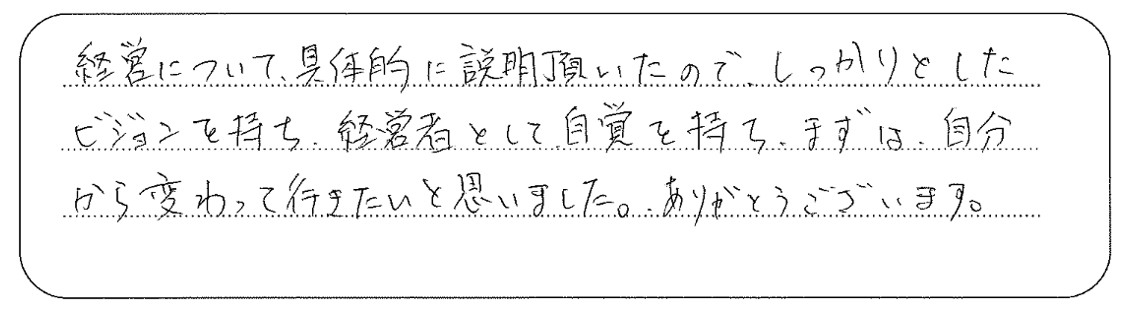 経営について、具体的に説明頂いたので、しっかりとした
ビジョンを持ち、経営者として自覚を持ち、まずは、自分
から変わって行きたいと思いました。ありがとうございます。